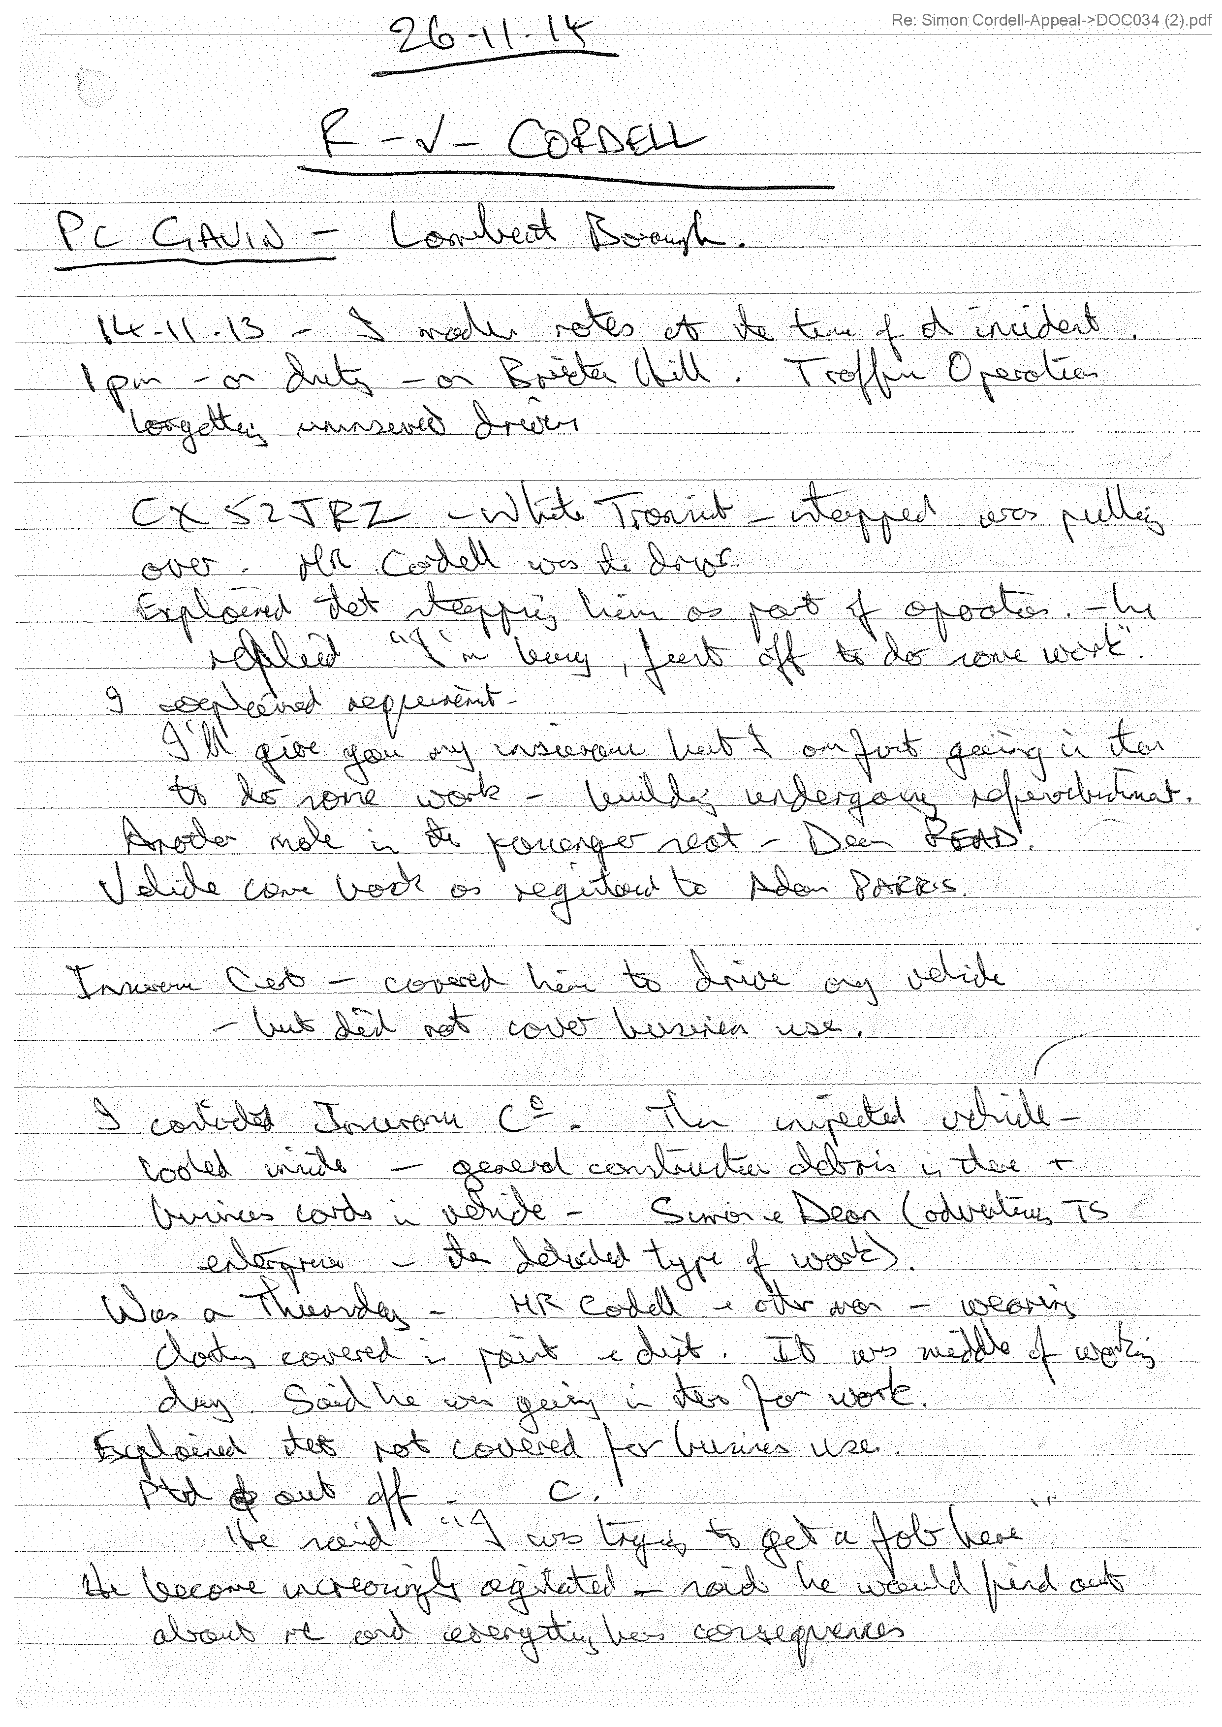 Re: Simon Cordell-Appeal->DOC034 (2).pdf
26-11-14
R -v- CORDELL
PC GAVIN - Lambeth Borough.
14-11-13 - I made notes at the time of incident.
1pm - on duty - on Brixton Hill. Traffic Operation
targetting uninsured drivers
CX 52 JRZ - White Transit - stopped was pulling
over. MR Cordell was the driver
Explained that stopping him as part of operation. - he
replied "I'm busy, just off to do some work".
I explained requirement -
I'll give you my insurance but I am just going in there
to do some work - building undergoing refurbishment.
Another male in the passenger seat - Dean READ.
Vehicle came back as registered to Adam
Insurance Cert - covered him to drive any vehicle
- but did not cover business use.
I contacted Insurance Co. Then inspected vehicle -
looked inside - general construction debris in there +
business cards in vehicle - Simon & Dean (advertising TS
enterprises - the detailed type of work).
Was a Thursday - MR Cordell & other man - wearing
clothes covered in paint & dust. It was middle of working
day. Said he was going in there for work.
Explained that not covered for business use.
Ptd out off - C.
He said "I was trying to get a job here"
He became increasingly agitated - said he would find out
about me and everything has consequences